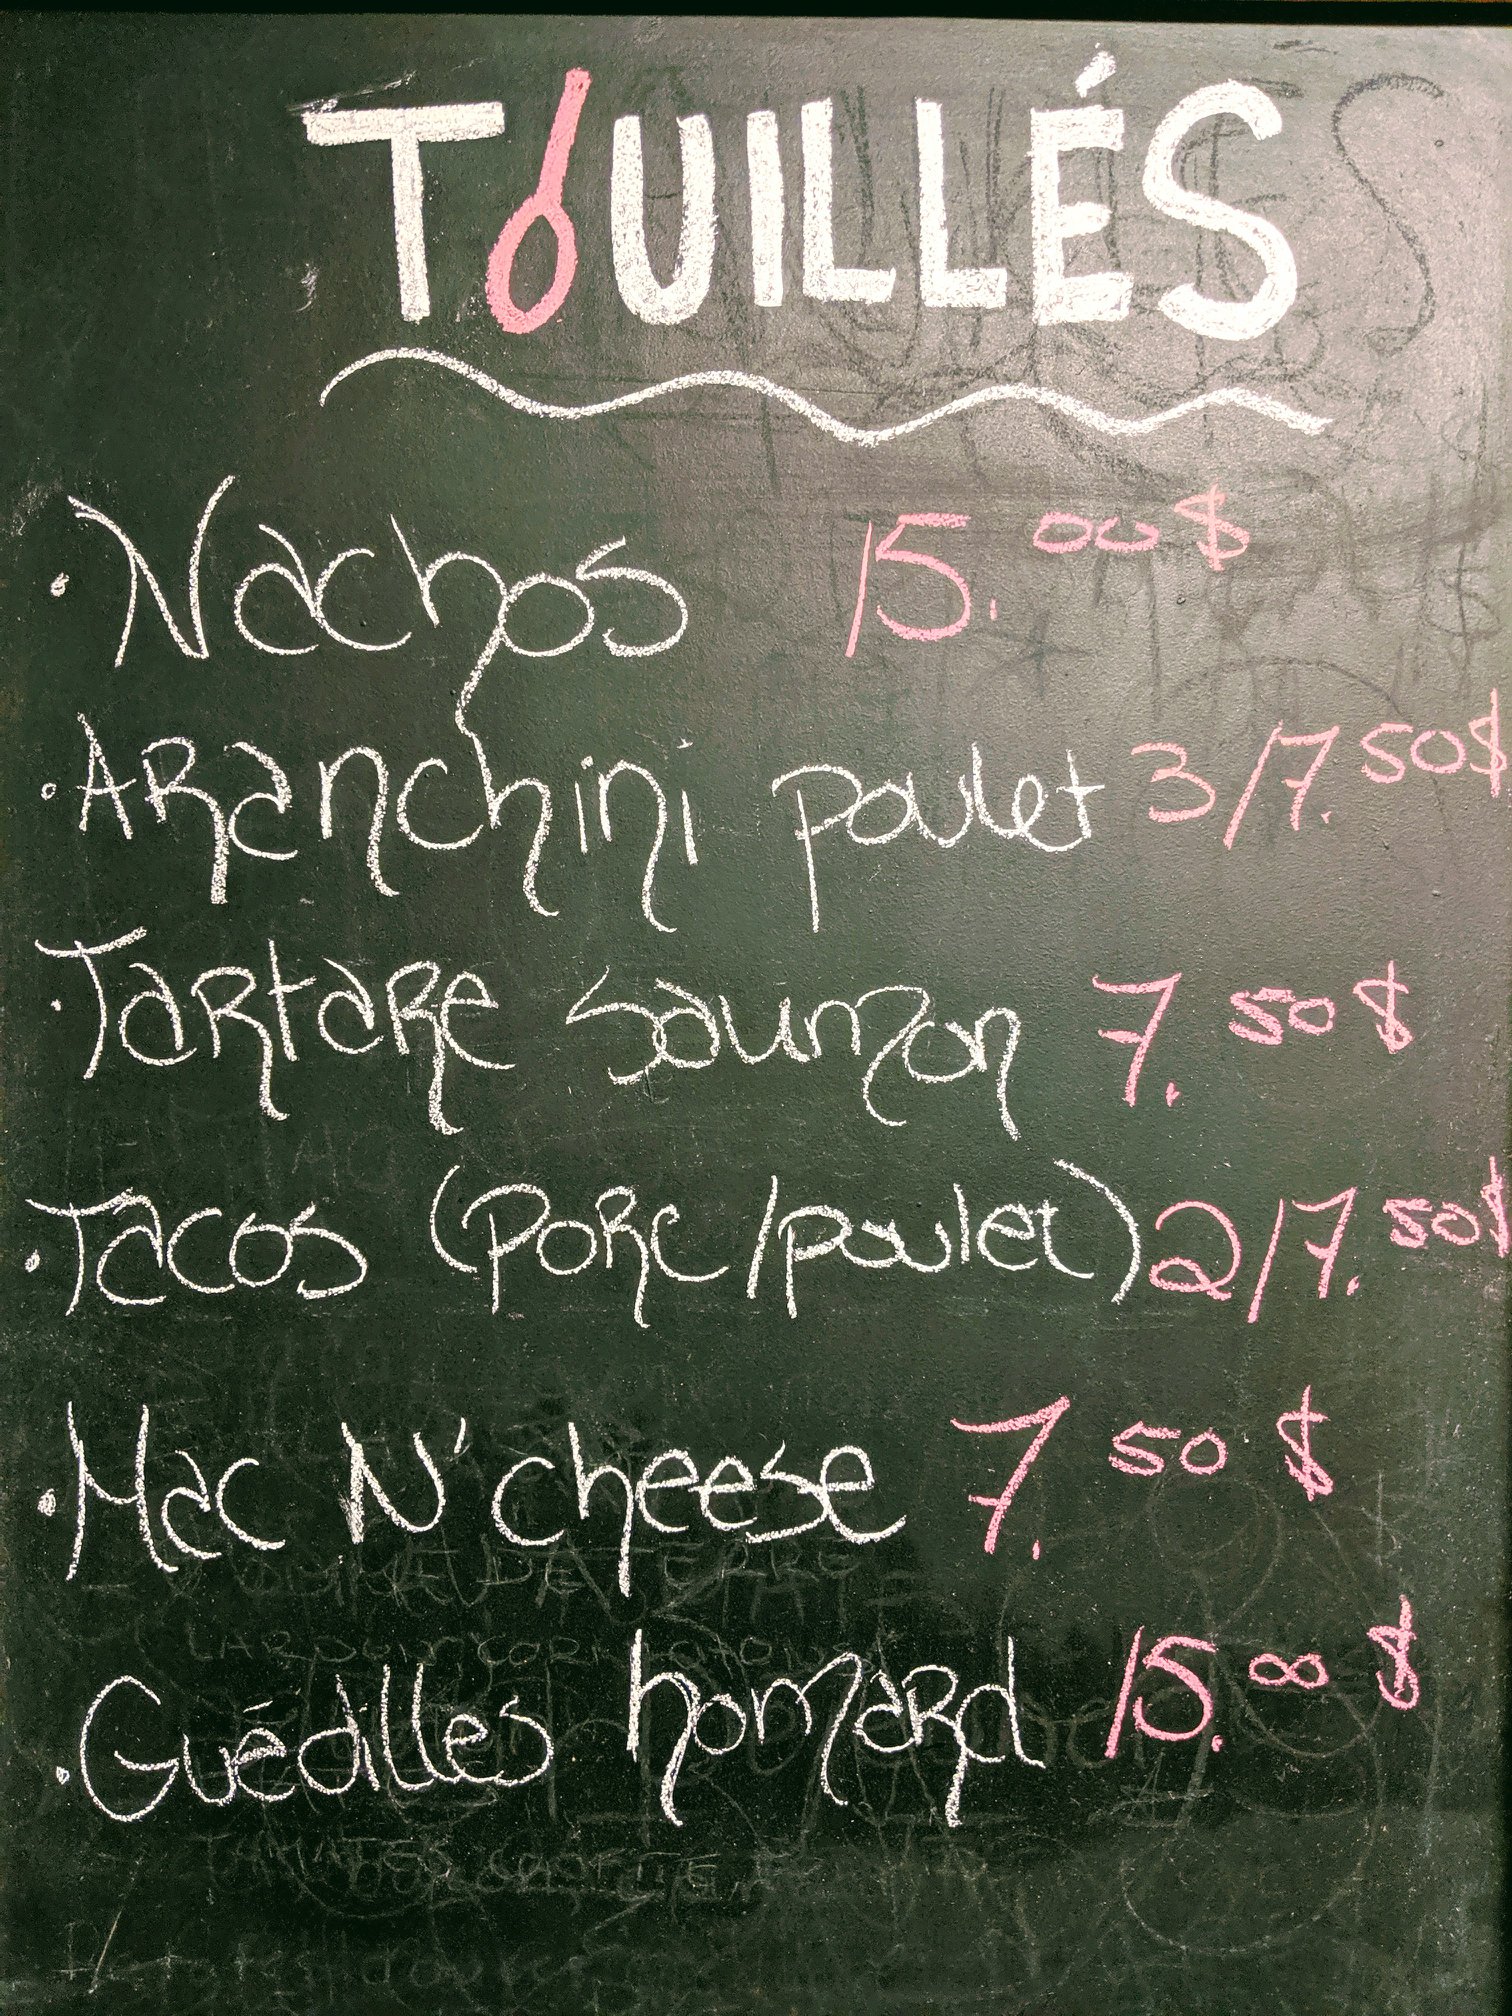 TOUILLÉS
• Nachos 15.00$
• Aranchini poulet 3/7.50$
• Tartare saumon 7.50$
• Tacos (porc/poulet) 2/7.50$
• Mac N' cheese 7.50$
• Guédilles homard 15.00$